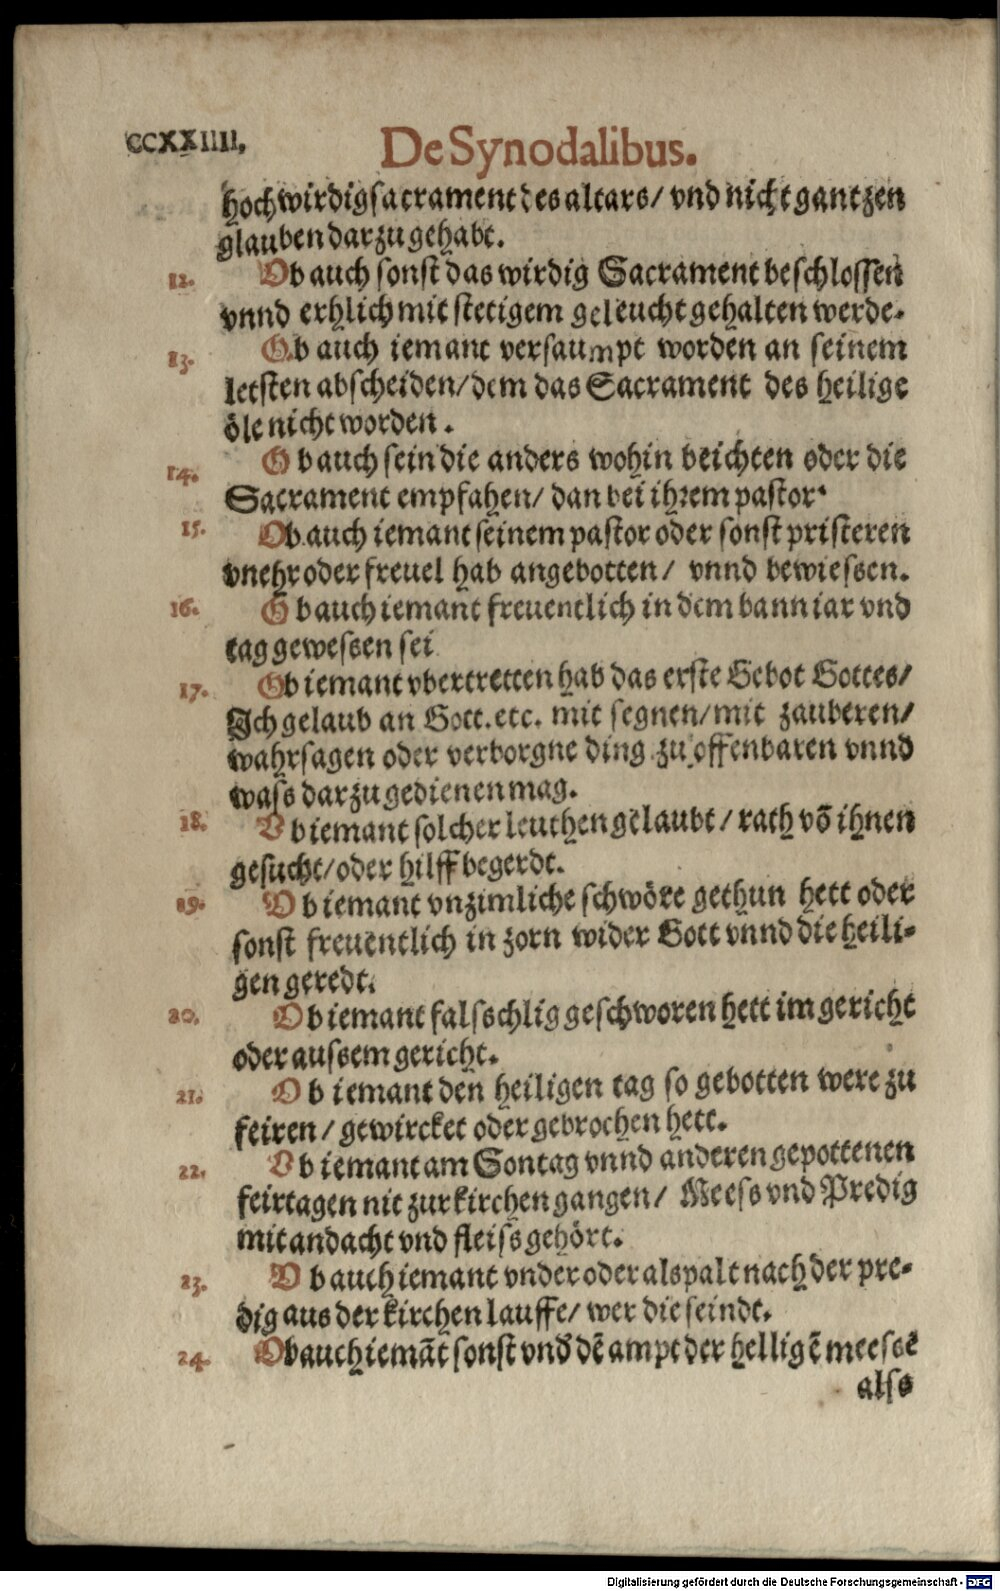 CCXXIIII.
De Synodalibus.
hochwirdig sacrament des altars/ vnd nicht gantzen
glauben darzu gehabt.
12. Ob auch sonst das wirdig Sacrament beschlossen
vnnd erhlich mit stetigem geleucht gehalten werde.
13. Ob auch iemant versaumpt worden an seinem
letsten abscheiden/ dem das Sacrament des heilige
öle nicht worden.
14. Ob auch sein die anders wohin beichten oder die
Sacrament empfahen/ dan bei ihrem pastor.
15. Ob auch iemant seinem pastor oder sonst pristeren
vnehr oder freuel hab angebotten/ vnnd bewiessen.
16. Ob auch iemant freuentlich in dem bann iar vnd
tag gewessen sei
17. Ob iemant vbertretten hab das erste Gebot Gottes/
Ich gelaub an Gott. etc. mit segnen/ mit zauberen/
wahrsagen oder verborgne ding zu offenbaren vnnd
wass darzu gedienen mag.
18. Ob iemant solcher leuthen gelaubt/ rath võ ihnen
gesucht/ oder hilff begerdt.
19. Ob iemant vnzimliche schwöre gethun hett oder
sonst freuentlich in zorn wider Gott vnnd die heili-
gen geredt.
20. Ob iemant falsschlig geschworen hett im gericht
oder aussem gericht.
21. Ob iemant den heiligen tag so gebotten were zu
feiren/ gewircket oder gebrochen hett.
22. Ob iemant am Sontag vnnd anderen gepottenen
feirtagen nit zur kirchen gangen/ Meess vnd Predig
mit andacht vnd fleiss gehört.
23. Ob auch iemant vnder oder alspalt nach der pre-
dig aus der kirchen lauffe/ wer die seindt.
24. Ob auch iemãt sonst vnd̃ dẽ ampt der helligẽ meessẽ
alss
Digitalisierung gefördert durch die Deutsche Forschungsgemeinschaft - DFG